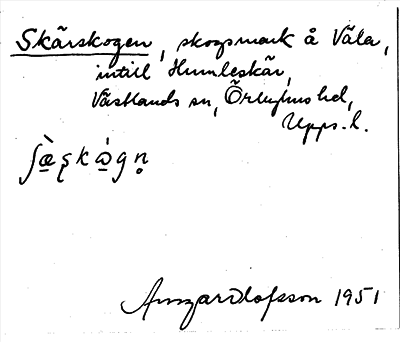 Skärskogen, skogsmark å Våla,
intill Humleskär,
Västlands sn, Örbyhus hd,
Upps. l.
ʃæ̀ʂkɷ́gn̥
1951